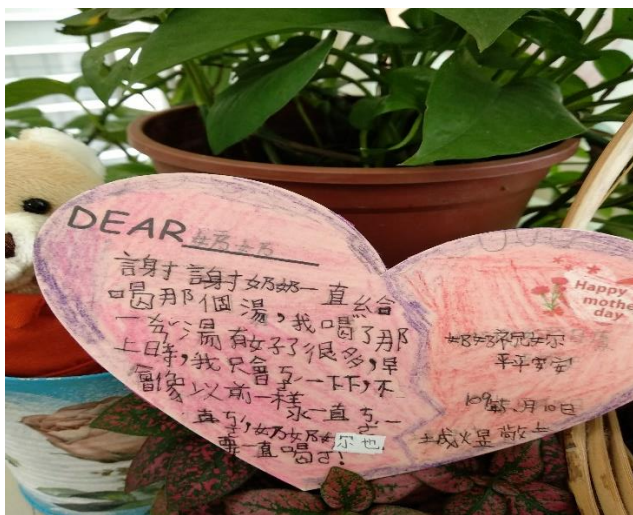 DEAR 奶奶
謝謝奶奶一直給
喝那個湯,我喝了那
湯有好了很多,早
上時,我只會ㄎ一下下,不
會像以前一樣 一直ㄎ一
直ㄎ,奶奶妳也
要一直喝ㄛ!
Happy
mothe
day
奶奶祝妳
平平安安
109年5月10日
敬上